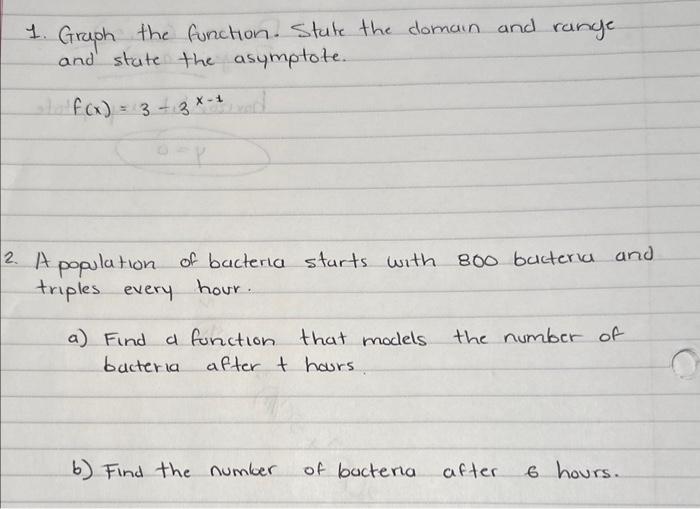 1. Graph the function. State the domain and range
and state the asymptote.
f(x) = 3 - 3^x-1
2. A population of bacteria starts with 800 bacteria and
triples every hour.
a) Find a function that models the number of
bacteria after t hours.
b) Find the number of bacteria after 6 hours.